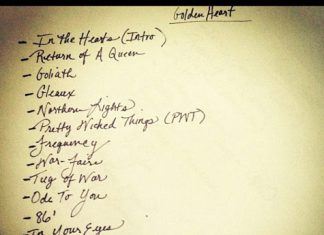 Golden Heart
- In The Hearts (Intro)
- Return of A Queen
- Goliath
- Gleaux
- Northern Lights
- Pretty Wicked Things (PWT)
- Frequency
- War-Faire
- Tug of War
- Ode To You
- 86'
- In Your Eyes